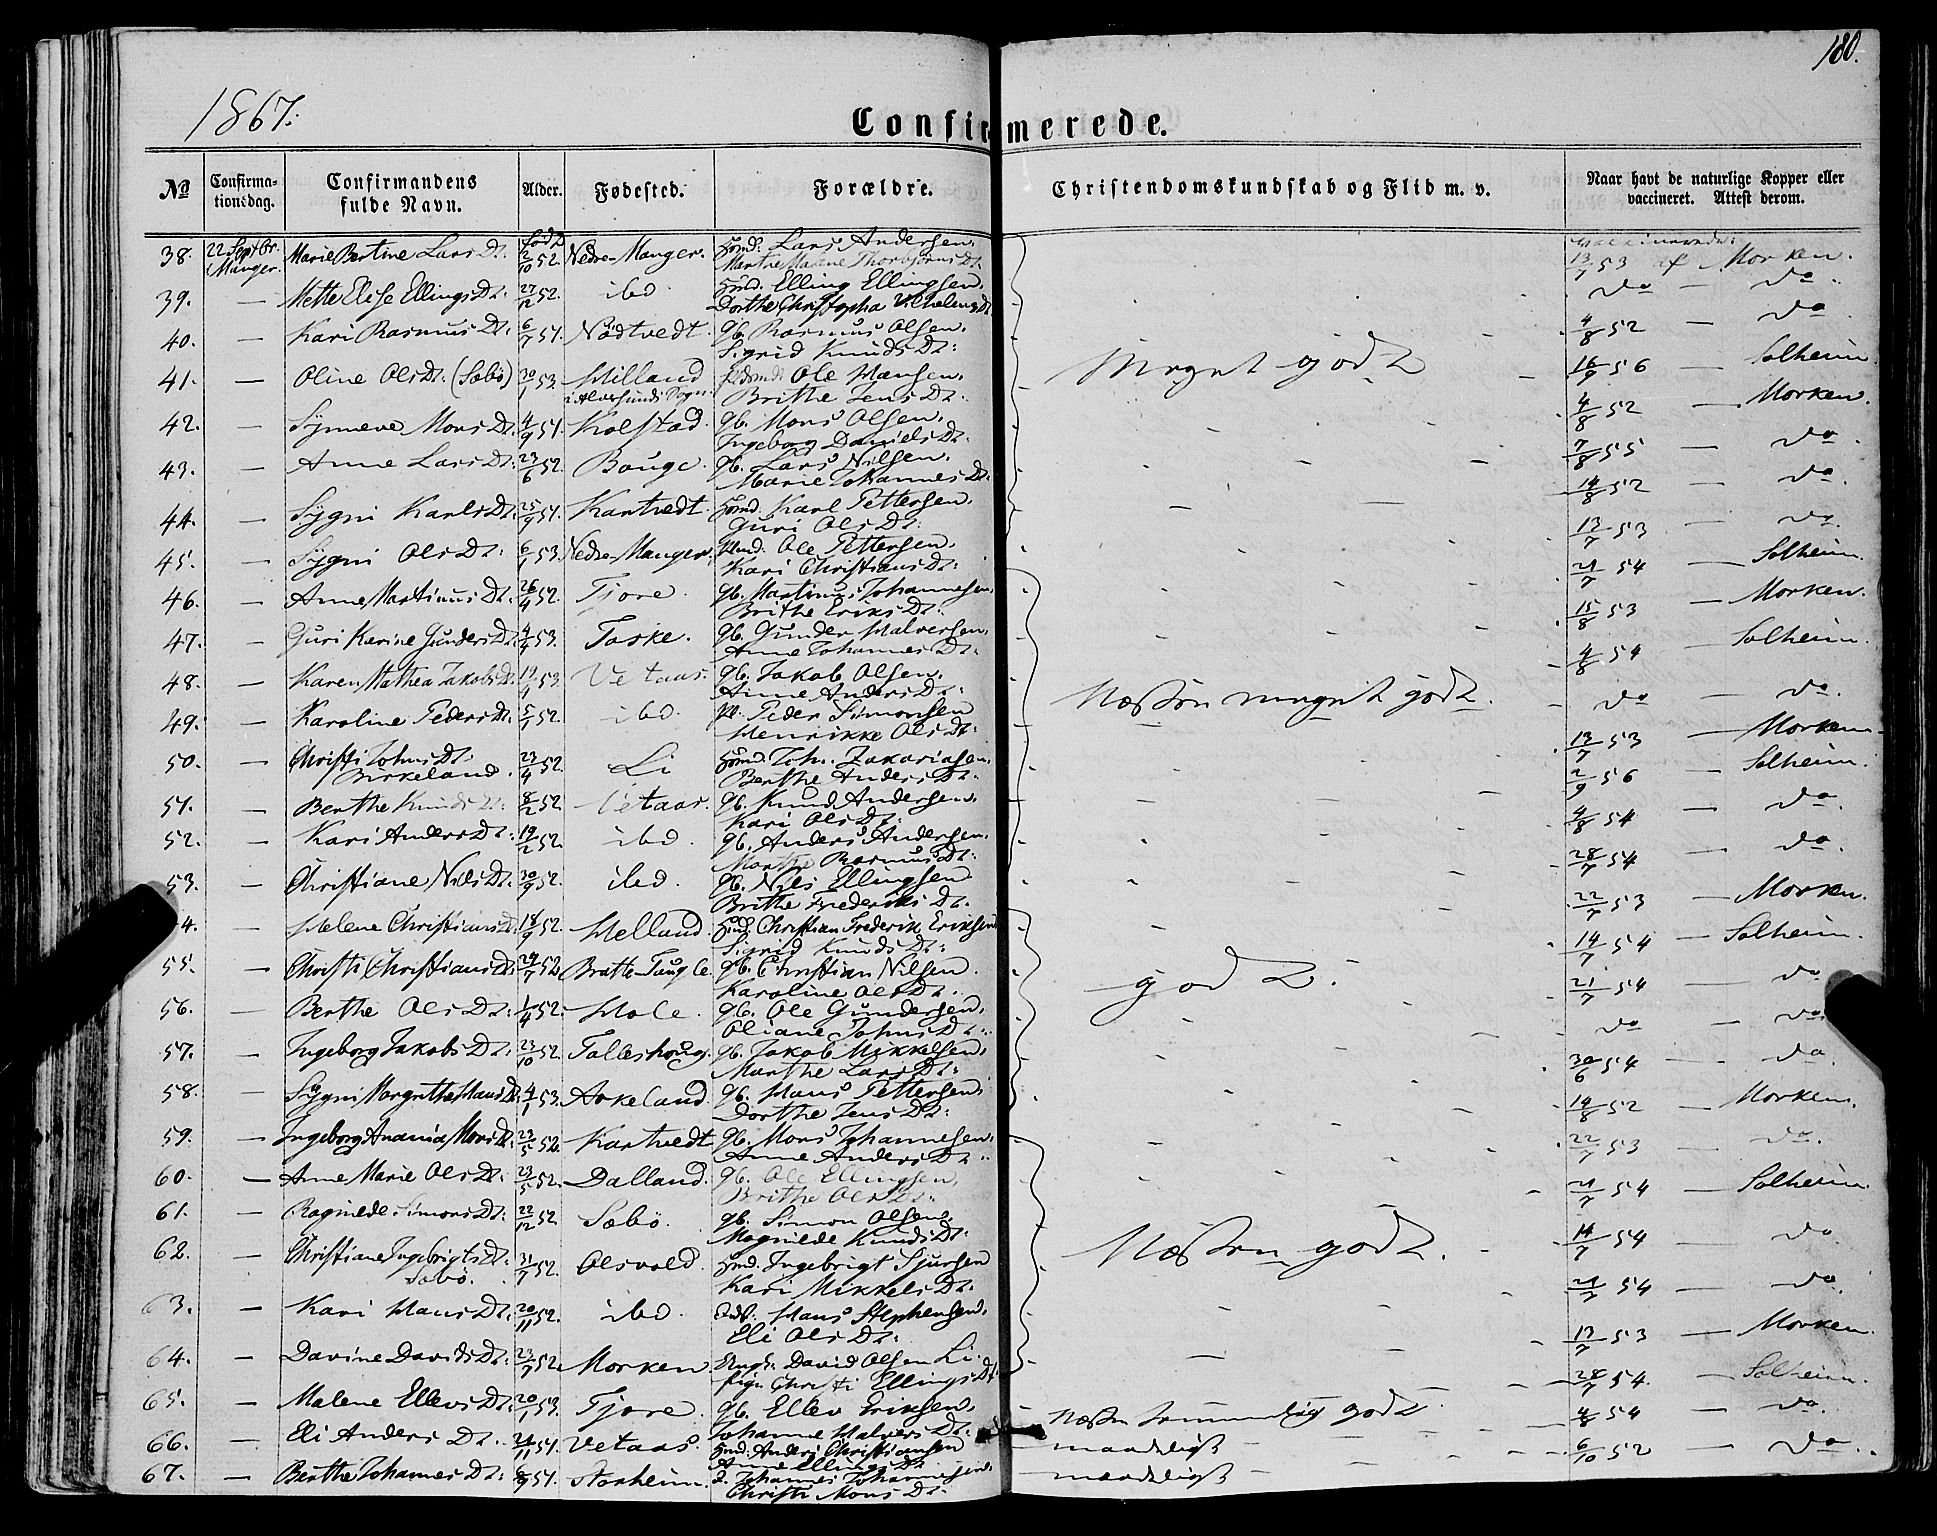 180.
1867.
Confirmerede.
No Confirmationsdag. Confirmandens fulde Navn. Alder. Fødested. Forældre. Christendomskundskab og Flid m. v. Naar havt de naturlige Kopper eller vaccineret. Attest derom.
38. 22 Septbr. Manger. Marie Bertine Lars Dt. født 2/10 52. Nedre-Manger. Huusmd: Lars Andersen. Marthe Malene Thorbjørns Dt. vaccinerede: 13/7 53 af Morken.
39. — Mette Elise Ellings Dt. 27/12 52. ibd Elling Ellingsen. Dorthe Christopha Vilhelms Dt. do — do.
40. — Kari Rasmus Dt. 6/7 51. Nødtvedt. gb. Rasmus Olsen. Sigrid Knuds Dt: 4/8 52 — do
41. — Oline Ols Dt. (Sæbø) 30/1 53. Hilland i Alversunds Sogn. Ole Hansen. Brithe Jens Dt. Meget godt 16/9 56 — Solheim
42. — Synneve Mons Dt. 4/9 51. Kolstad. gb. Mons Olsen. Ingeborg Daniels Dt. 4/8 52 — Morken.
43. — Anne Lars Dt. 23/6 52. Bouge. gb. Lars Nilsen. Marie Johannes Dt. 7/8 55 — do.
44. — Sygni Karls Dt. 25/9 51. Kartvedt. Karl Pettersen. Guri Ols Dt. 14/8 52 — do.
45. — Sygni Ols Dt: 6/1 53. Nedre-Manger. Ole Pettersen. Kari Christians Dt: 13/7 53 — do.
46. — Anne Martinus Dt. 26/4 52. Tjore. gb. Martinus Johannesen. Brithe Eriks Dt: 21/7 54 — Solheim.
47. — Guri Karine Gunders Dt. 4/4 53. Toske. gb. Gunder Halversen. Anne Johannes Dt: 15/8 53 — Morken.
48. — Karen Mathea Jakobs Dt. 53. Vetaas. gb. Jakob Olsen. Anne Anders Dt: Næsten meget godt. 4/8 54 — Solheim.
49. — Karoline Peders Dt. 5/1 52. ibd. Peder Simonsen Henrikke Ols Dt: do — do.
50. — Christi Johns Dt. Birkeland. 23/4 52. Li John Zakariasen. Berthe Anders Dt: 13/7 53 — Morken.
51. — Berthe Knuds Dt. 8/2 52. Vetaas. gb. Knud Andersen. Kari Ols Dt: 2/9 56 — Solheim.
52. — Kari Anders Dt: 19/2 52. ibd. gb. Anders Andersen. Marthe Rasmus Dt: 4/8 54 — do.
53. — Christiane Nils Dt: 30/9 52. ibd. gb. Nils Ellingsen Brithe Frederiks Dt. 28/7 54 — do.
4. — Helene Christians Dt. 18/9 52. Helland. Christian Frederik Eriksen Sigrid Knuds Dt: 22/7 53 — Morken.
55. — Christi Christians Dt. 29/7 52. Bratte-Taugle. gb. Christian Nilsen. Karoline Ols Dt. godt. 14/7 54 — Solheim.
56. — Berthe Ols Dt: 1/4 52. Hole. gb. Ole Gundersen. Oliane Johns Dt. 21/7 54 — do
57. — Ingeborg Jakobs Dt. 23/10 52. Tolleshoug. gb. Jakob Mikkelsen. Marthe Lars Dt: do — do.
58. — Sygni Margrethe Hans Dt. 4/1 53. Askeland gb. Hans Pettersen. Dorthe Jens Dt: 30/6 54 — do
59. — Ingeborg Anania Mons Dt. 23/5 52. Kartvedt gb. Mons Johannesen. Anne Anders Dt. 14/8 52 — Morken.
60. — Anne Marie Ols Dt. 23/5 52. Dalland. gb. Ole Ellingsen. Brithe Ols Dt. 22/7 53 — do.
61. — Ragnilde Simons Dt. 22/12 52. Sæbø. gb. Simon Olsen. Magnilde Knuds Dt. 21/7 54 — Solheim.
62. — Christiane Ingebrigts Dt. Sæbø. 31/7 52. Olsvold. Ingebrigt Sjursen Kari Mikkels Dt. Næsten godt. 14/7 54 — do
63. — Kari Hans Dt. 20/11 52. ibd. Hans Stephensen. Eli Ols Dt: 21/7 54 — do
64. — Davine Davids Dt: 23/7 52. Morken. Ungk. David Olsen Li. Pige Christi Ellings Dt. 13/7 53 — Morken.
65. — Malene Ellevs Dt. 20/1 53. Tjore. gb. Ellev Eriksen. Johanne Halvers Dt. næsten temmelig godt 28/7 54. — Solheim.
66. — Eli Anders Dt. 51. Vetaas. Anders Christiansen Anne Ellings Dt maadeligt 4/8 54 — do.
67. — Berthe Johannes Dt: 8/9 51. Storheim. Johannes Johannesen. Christi Mons Dt. maadeligt 6/10 52 — do.